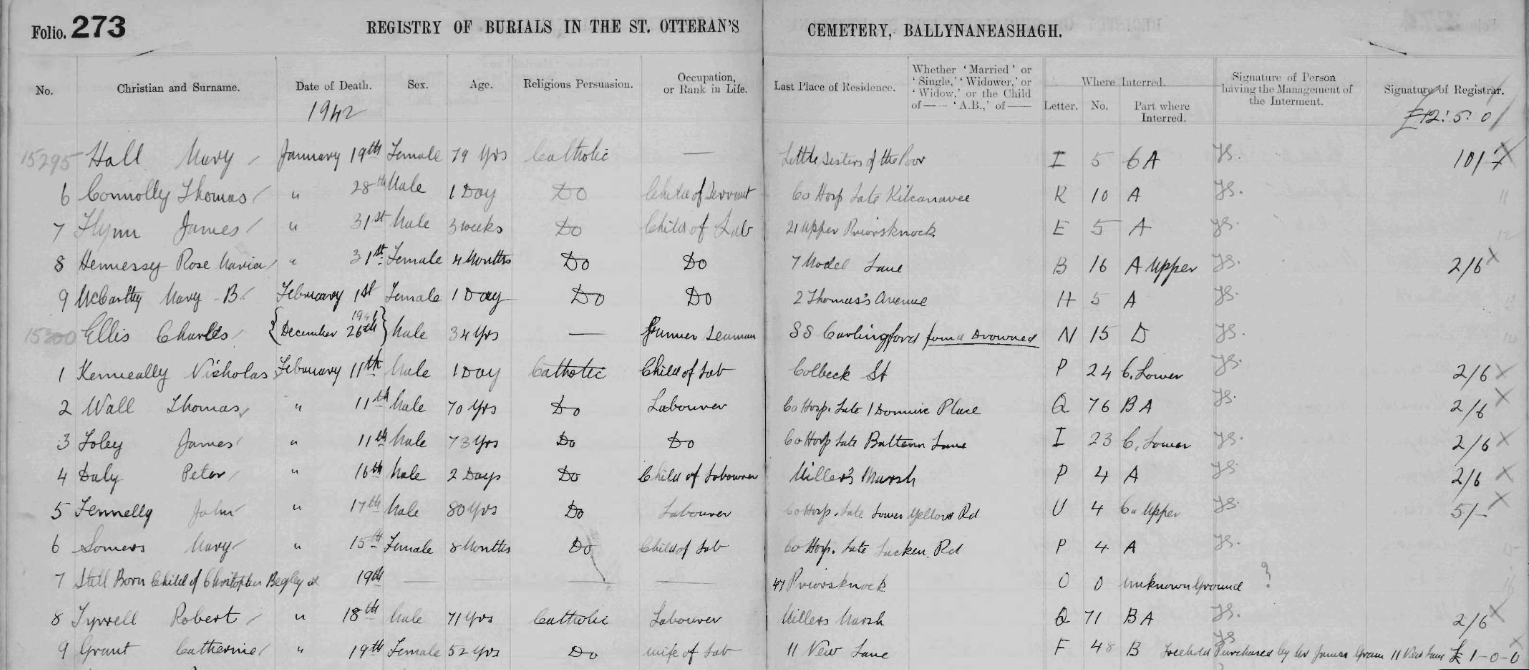 Folio. 273 REGISTRY OF BURIALS IN THE ST. OTTERAN'S CEMETERY, BALLYNANEASHAGH.
No. Christian and Surname. Date of Death. Sex. Age. Religious Persuasion. Occupation, or Rank in Life. Last Place of Residence. Whether 'Married' or 'Single,' 'Widower,' or 'Widow,' or the Child of —— 'A.B.,' of —— Where Interred. Letter. No. Part where Interred. Signature of Person having the Management of the Interment. Signature of Registrar.
1942 £12:5:0
15295 Hall Mary January 19th Female 79 Yrs Catholic — Little Sisters of the Poor I 5 6 A JS. 10/-
6 Connolly Thomas " 28th Male 1 Day Do Child of Servant Co Hosp Late Kilcanavee K 10 A JS.
7 Flynn James " 31st Male 3 weeks Do Child of Lab 21 Upper Priorsknock E 5 A JS.
8 Hennessy Rose Maria " 31st Female 4 Months Do Do 7 Model Lane B 16 A Upper JS. 2/6 X
9 McCarthy Mary B. February 1st Female 1 Day Do Do 2 Thomas's Avenue H 5 A JS.
15300 Ellis Charles {December 26th 1941} Male 34 Yrs — Gunner Seaman SS Carlingford found Drowned N 15 D JS.
1 Kenneally Nicholas February 11th Male 1 Day Catholic Child of Lab Colbeck St P 24 C. Lower JS. 2/6 X
2 Wall Thomas " 11th Male 70 Yrs Do Labourer Co Hosp. Late 1 Dominic Place Q 76 B A JS. 2/6 X
3 Foley James " 11th Male 73 Yrs Do Do Co Hosp Late Lane I 23 C. Lower JS. 2/6 X
4 Daly Peter " 16th Male 2 Days Do Child of Labourer Miller's Marsh P 4 A JS. 2/6 X
5 Fennelly John " 17th Male 80 Yrs Do Labourer Co Hosp. Late Lower Yellow Rd U 4 Upper JS. 5/- X
6 Somers Mary " 15th Female 8 Months Do Child of Lab Co Hosp. Late Rd P 4 A JS.
7 Still Born Child of Christopher Begley at 19th — — — — 47 Priorsknock O 0 unknown Ground ?
8 Tyrrell Robert " 18th Male 71 Yrs Catholic Labourer Millers Marsh Q 71 B A JS. 2/6 X
9 Grant Catherine " 19th Female 52 Yrs Do wife of Lab 11 New Lane F 48 B JS. Freehold Purchased by Mr James 11 New Lane £1-0-0 X